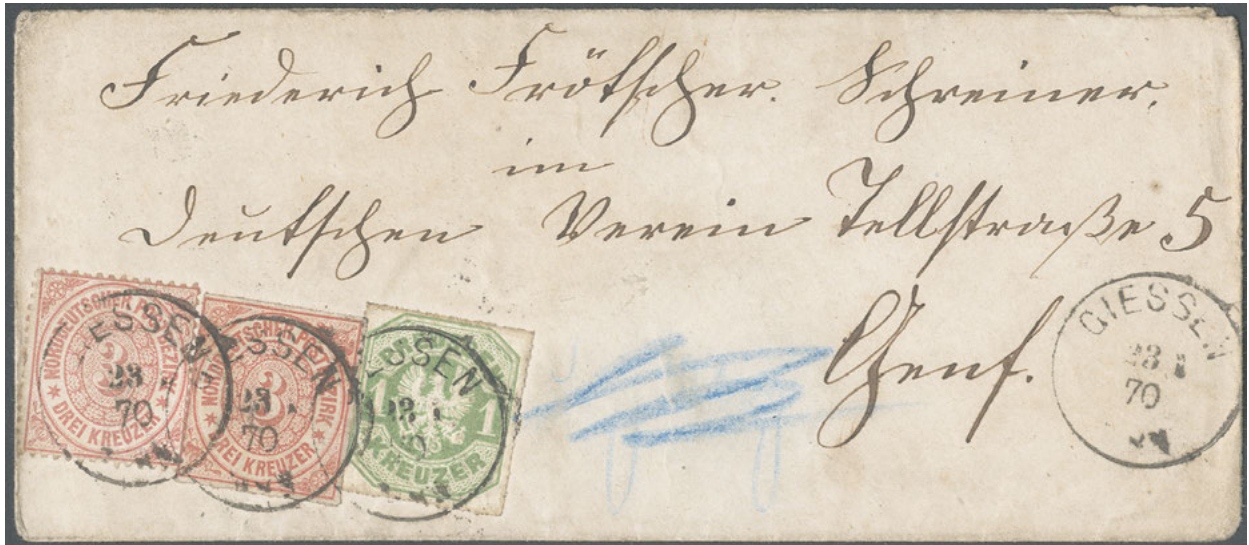 Friederich Frötscher. Schreiner.
im
Deutschen Verein Tellstraße 5
Genf.
GIESSEN
23 1
70
NORDDEUTSCHER POSTBEZIRK
3
DREI KREUZER
GIESSEN
23
70
NORDDEUTSCHER POSTBEZIRK
3
DREI KREUZER
GIESSEN
23
70
1 1
KREUZER
GIESSEN
23